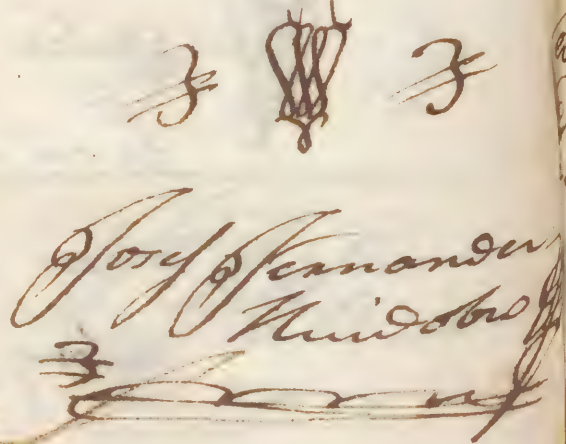 Josef Fernandez
Huidobro